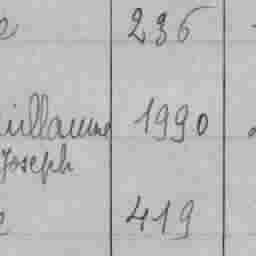 e 236
uillaume 1990
Joseph
e 419